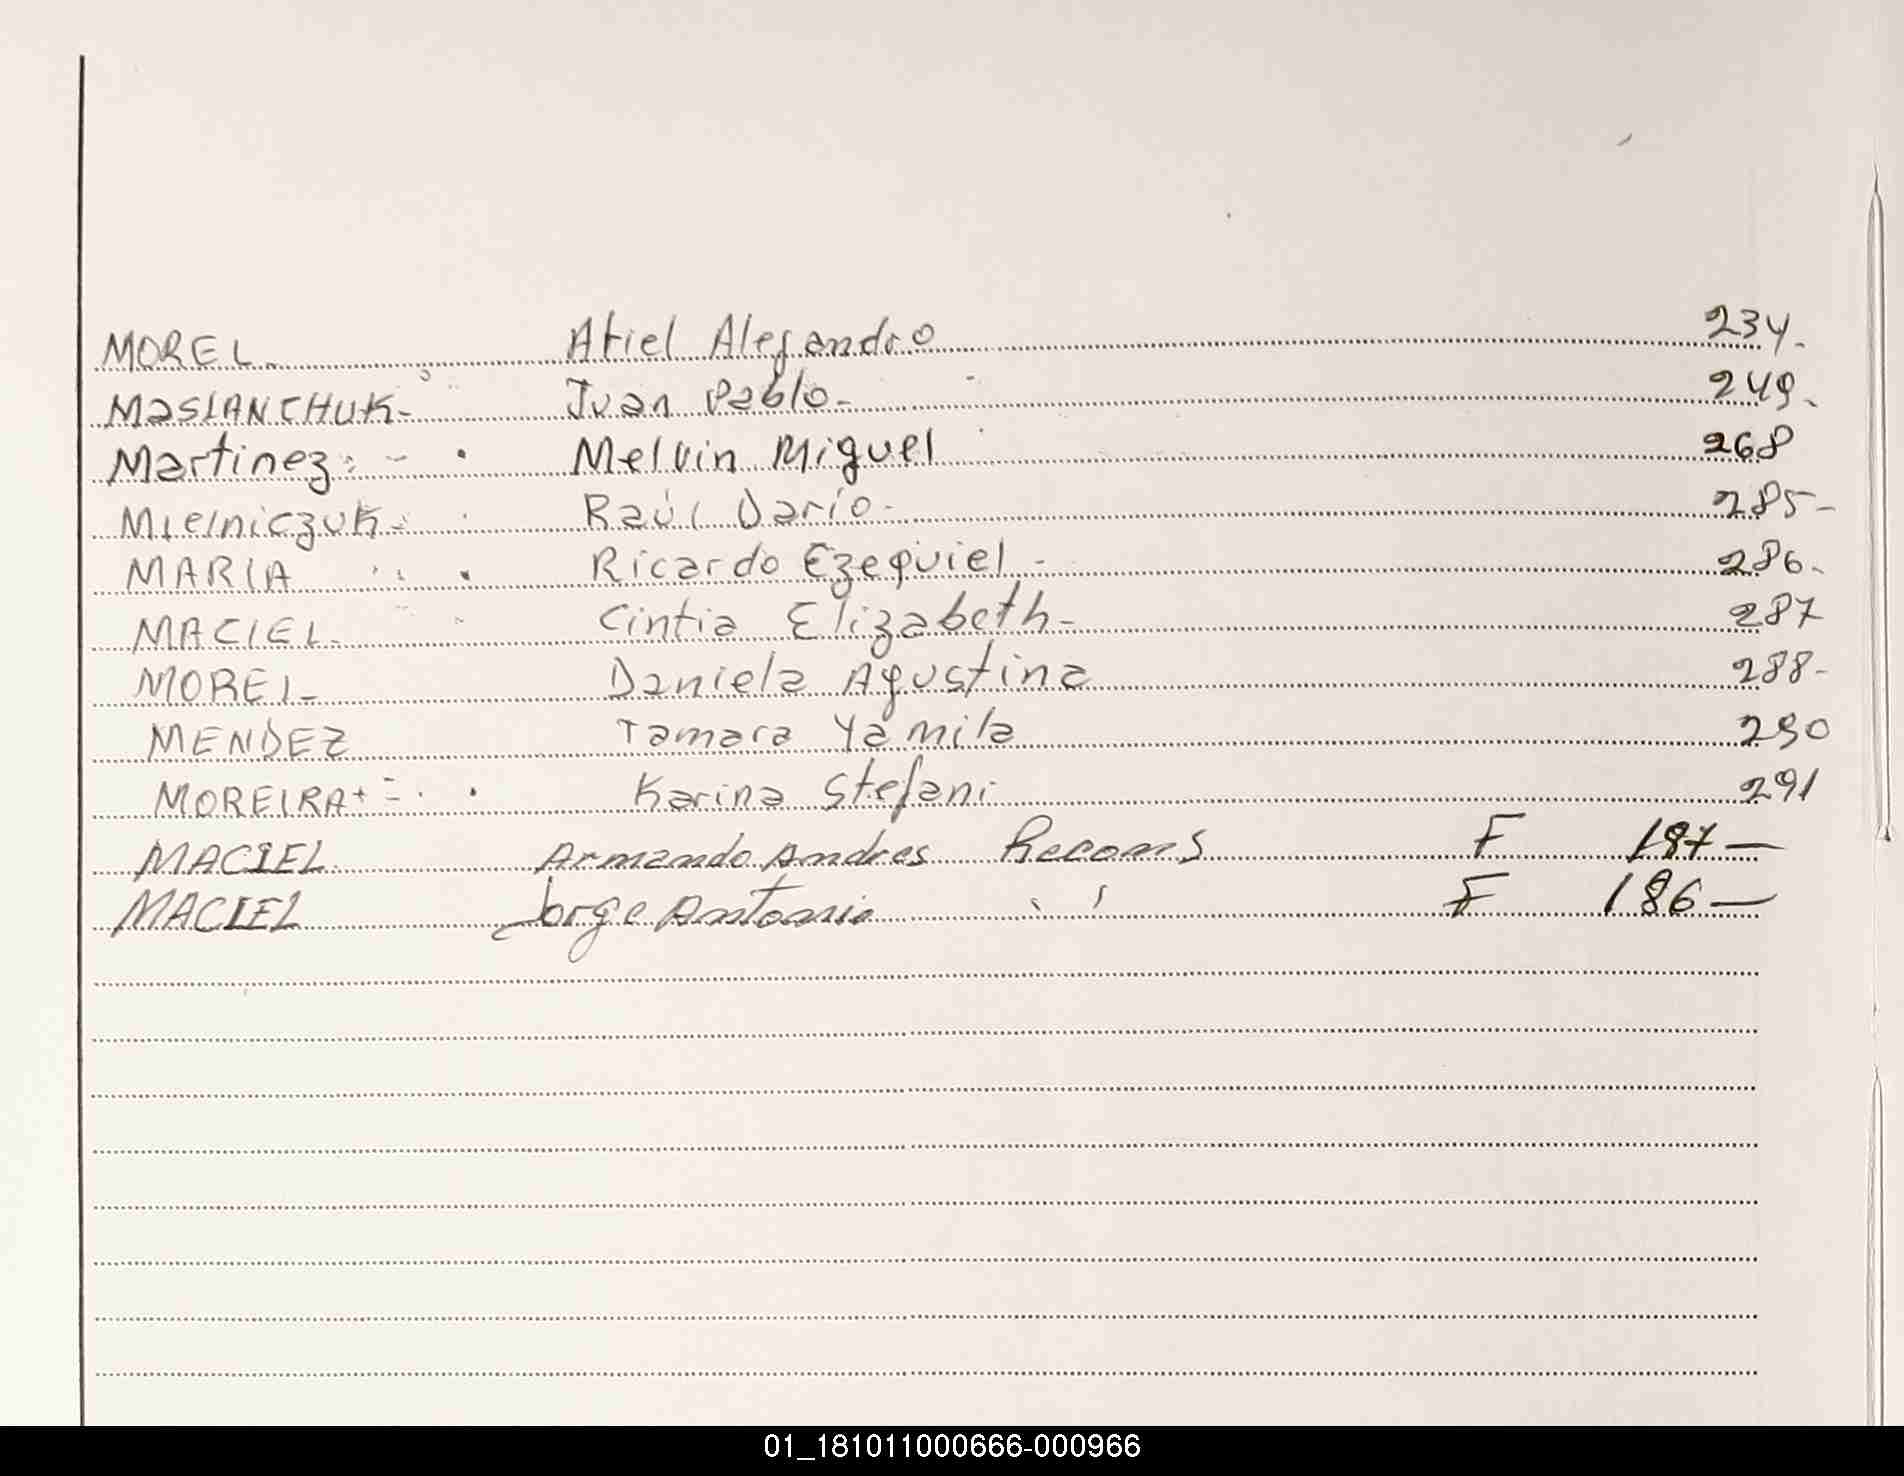 MOREL Ariel Alejandro 234.
MaSLANCHUK- Juan Pablo- 249.
Martinez Melvin Miguel 268
Mielniczuk- Raúl Darío- 285-
MARIA Ricardo Ezequiel- 286.
MACIEL- Cintia Elizabeth- 287
MOREL- Daniela Agustina 288-
MENDEZ Tamara Yamila 290
MOREIRA Karina Stefani 291
MACIEL Armando Andres Recons F 187-
MACIEL Jorge Antonio " F 186-
01_181011000666-000966